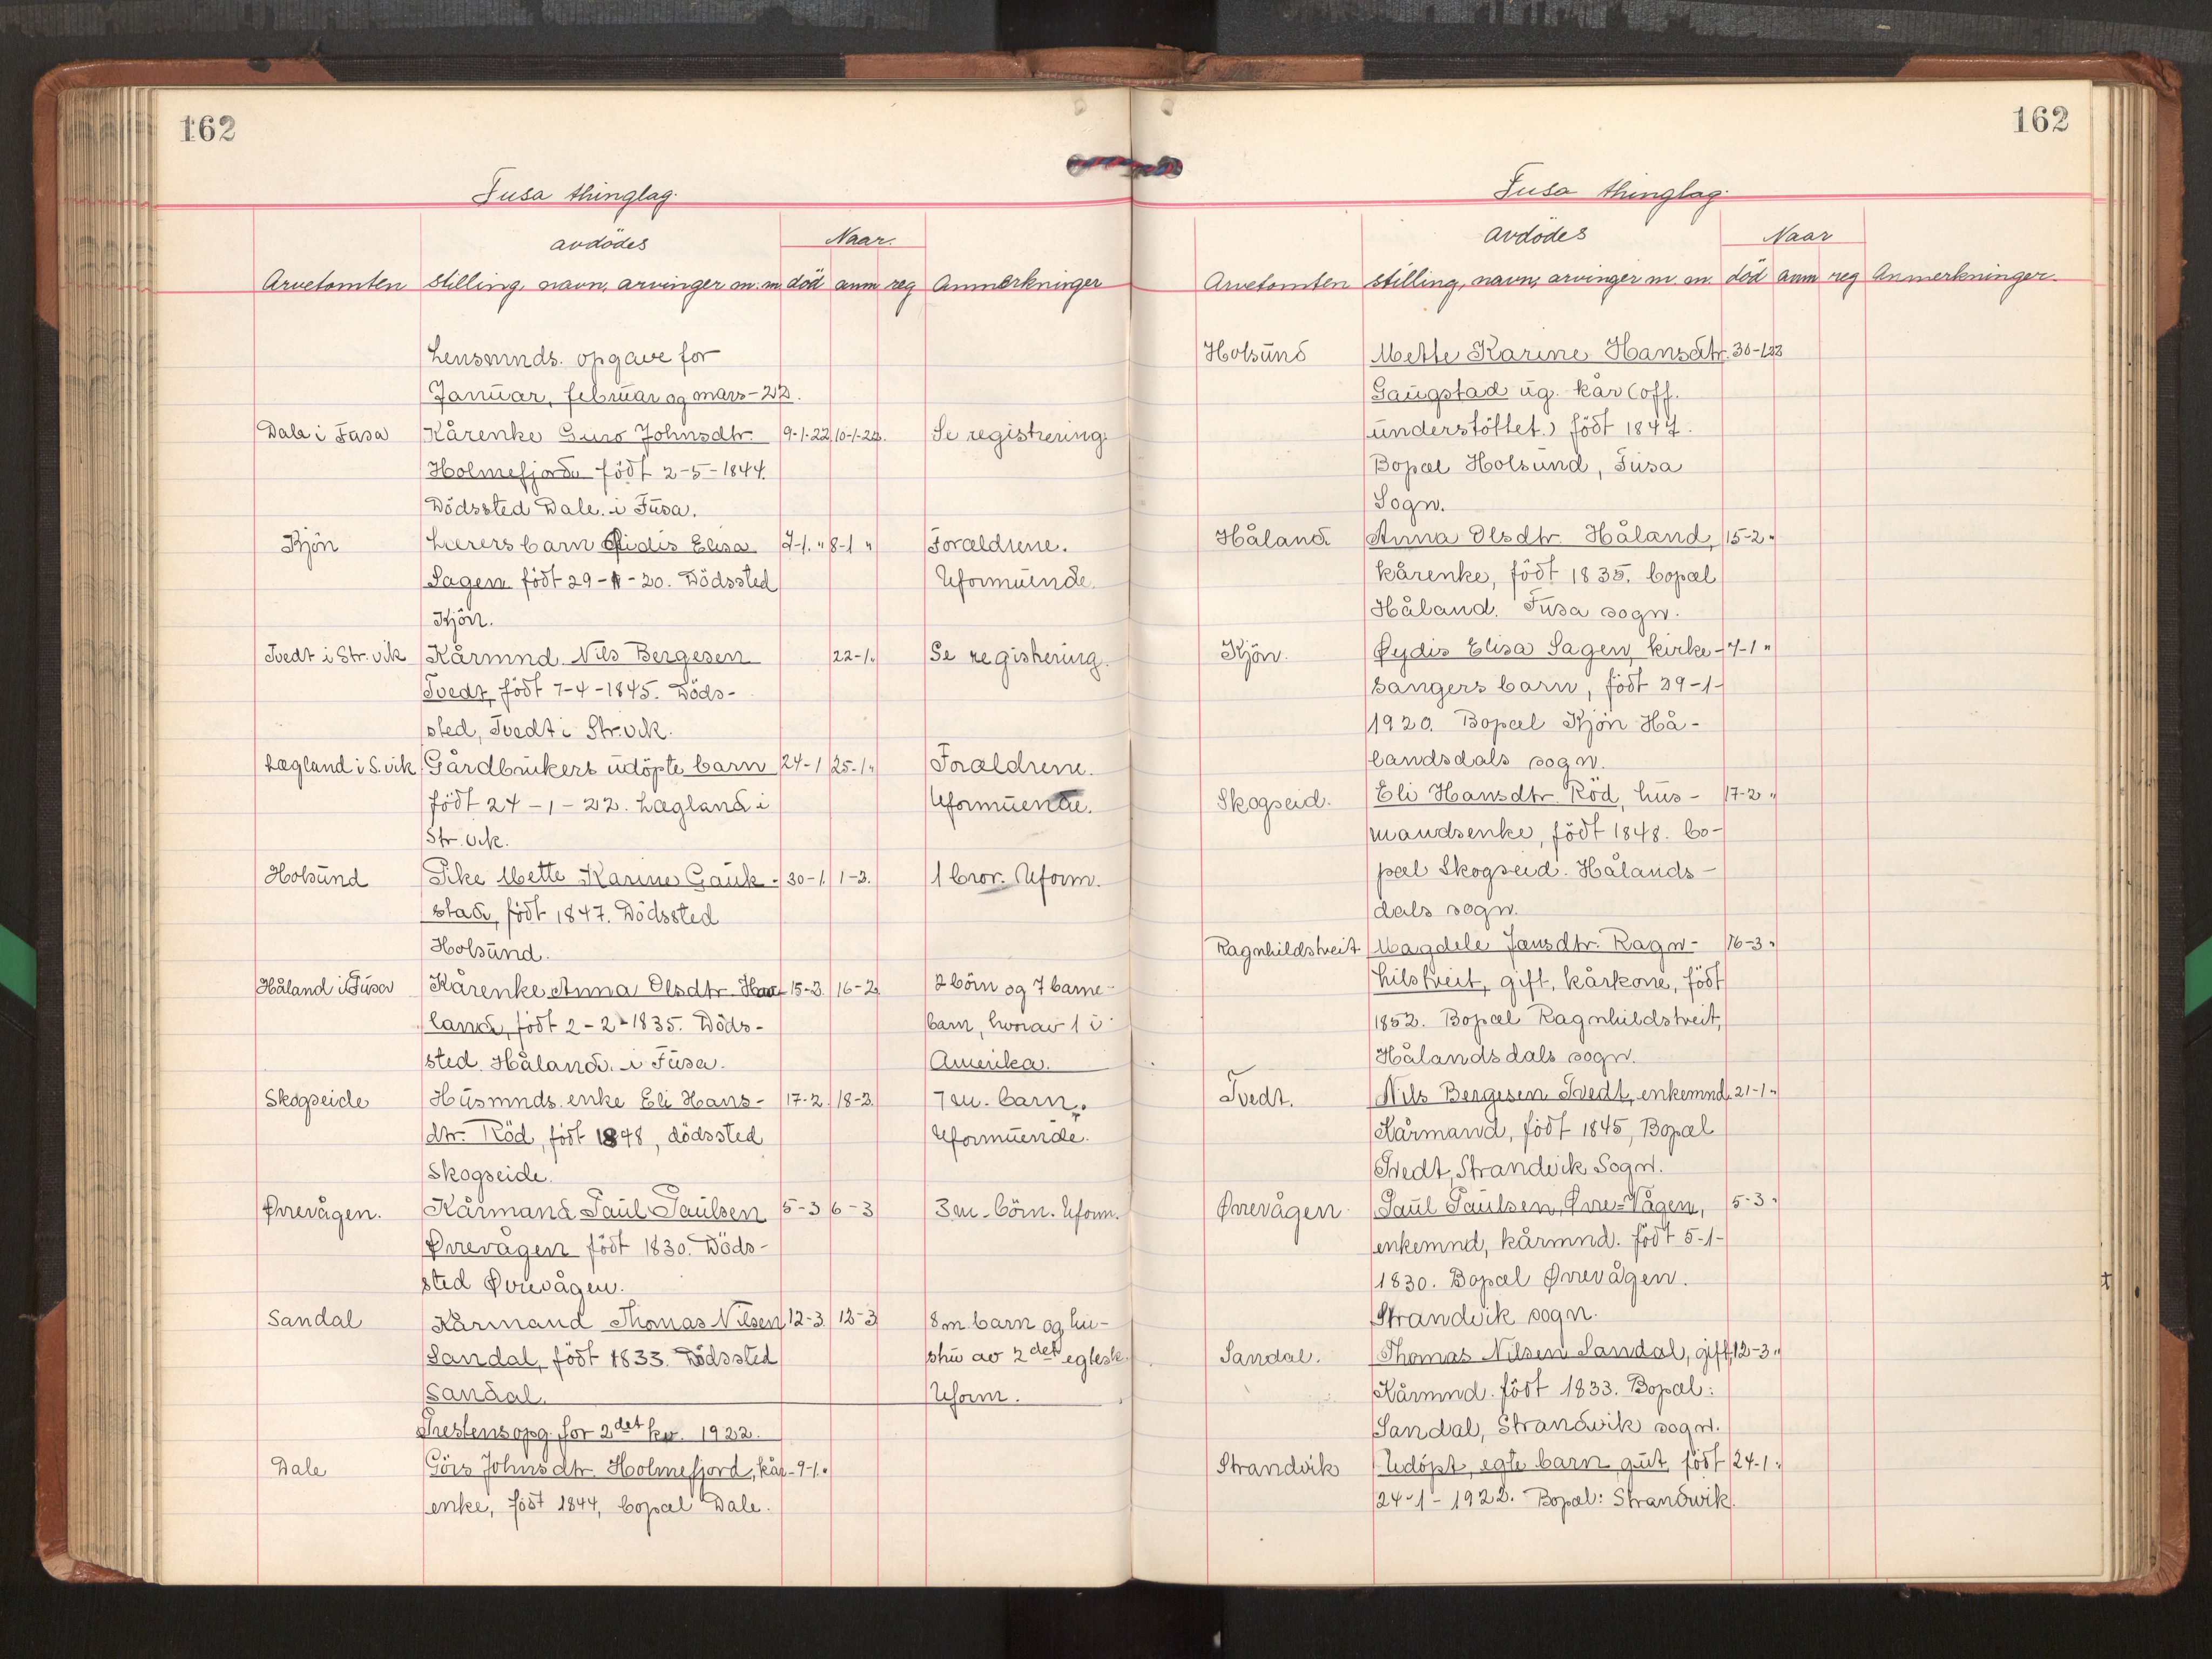 162
Fusa thinglag.
avdödes
Naar.
Arvetomten stilling, navn, arvinger m.m. död anm reg Anmerkninger
Lensmnds. opgave for
Januar, februar og mars-22.
Dale i Fusa Kårenke Guro Johnsdtr. 9-1-22 10-1-22. Se registrering.
Holmefjord född 2-5-1844.
Dödssted Dale i Fusa.
Kjön Lærers barn Øidis Elisa 7-1. " 8-1 " Forældrene.
Sagen född 29-1-20. Dödssted Uformuende.
Kjön.
Tvedt i Str.vik Kårmnd. Nils Bergesen 22-1 " Se registrering.
Tvedt, född 7-4-1845. Döds-
sted, Tvedt i Str.vik.
Lægland i S.vik Gårdbrukers udöpte barn 24-1 25-1 " Forældrene.
född 24-1-22. Lægland i Uformuende.
Str.vik.
Holsund Pike Mette Karine Gauk- 30-1. 1-2. 1 bror. Uform.
stad, född 1847. Dödssted
Holsund.
Håland i Fusa Kårenke Anna Olsdtr. Haa- 15-2. 16-2. 2 börn og 7 barne-
land, född 2-2-1835. Döds- barn, hvorav 1 i
sted. Håland. i Fusa. Amerika.
Skogseide Husmnds. enke Eli Hans- 17-2. 18-2. 7 m. barn.
dtr. Röd, född 1848, dödssted Uformuende.
Skogseide.
Ørrevågen. Kårmand Paul Paulsen 5-3 6-3 3 m. börn. Uform.
Ørrevågen född 1830. Döds-
sted Ørrevågen.
Sandal Kårmand Thomas Nilsen 12-3. 12-3 8 m. barn og hu-
Sandal, född 1833. Dödssted stru av 2det egtesk.
Sandal. Uform.
Prestens opg. for 2det kv. 1922.
Dale Göro Johnsdtr. Holmefjord, kår- 9-1. "
enke, född 1844, bopæl Dale.
162
Fusa thinglag.
avdödes
Naar
Arvetomten stilling, navn, arvinger m.m. död anm reg Anmerkninger.
Holsund Mette Karine Hansdtr. 30-1-22
Gaugstad ug. kår (off.
understöttet.) född 1847.
Bopæl Holsund, Fusa
Sogn.
Håland. Anna Olsdtr. Håland, 15-2 "
kårenke, född 1835. bopæl
Håland. Fusa sogn.
Kjön. Øydis Elisa Sagen, kirke- 7-1 "
sangers barn, född 29-1-
1920. Bopæl Kjön Hå-
landsdals sogn.
Skogseid. Eli Hansdtr. Röd, hus- 17-2 "
mandsenke, född 1848. bo-
pæl Skogseid. Hålands-
dals sogn.
Ragnhildstveit Magdele Jansdtr. Ragn- 16-3 "
hilstveit, gift, kårkone, född
1852. Bopæl Ragnhildstveit,
Hålandsdals sogn.
Tvedt. Nils Bergesen Tvedt, enkemnd. 21-1 "
Kårmand, född 1845, Bopæl
Tvedt, Strandvik Sogn.
Ørrevågen Paul Paulsen, Ørre-Vågen, 5-3 "
enkemnd, kårmnd. född 5-1-
1830. Bopæl Ørrevågen.
Strandvik sogn.
Sandal. Thomas Nilsen Sandal, gift, 12-3 "
Kårmnd. född 1833. Bopæl:
Sandal, Strandvik sogn.
Strandvik Udöpt, egte barn, gut, född 24-1 "
24-1-1922. Bopæl: Strandvik.